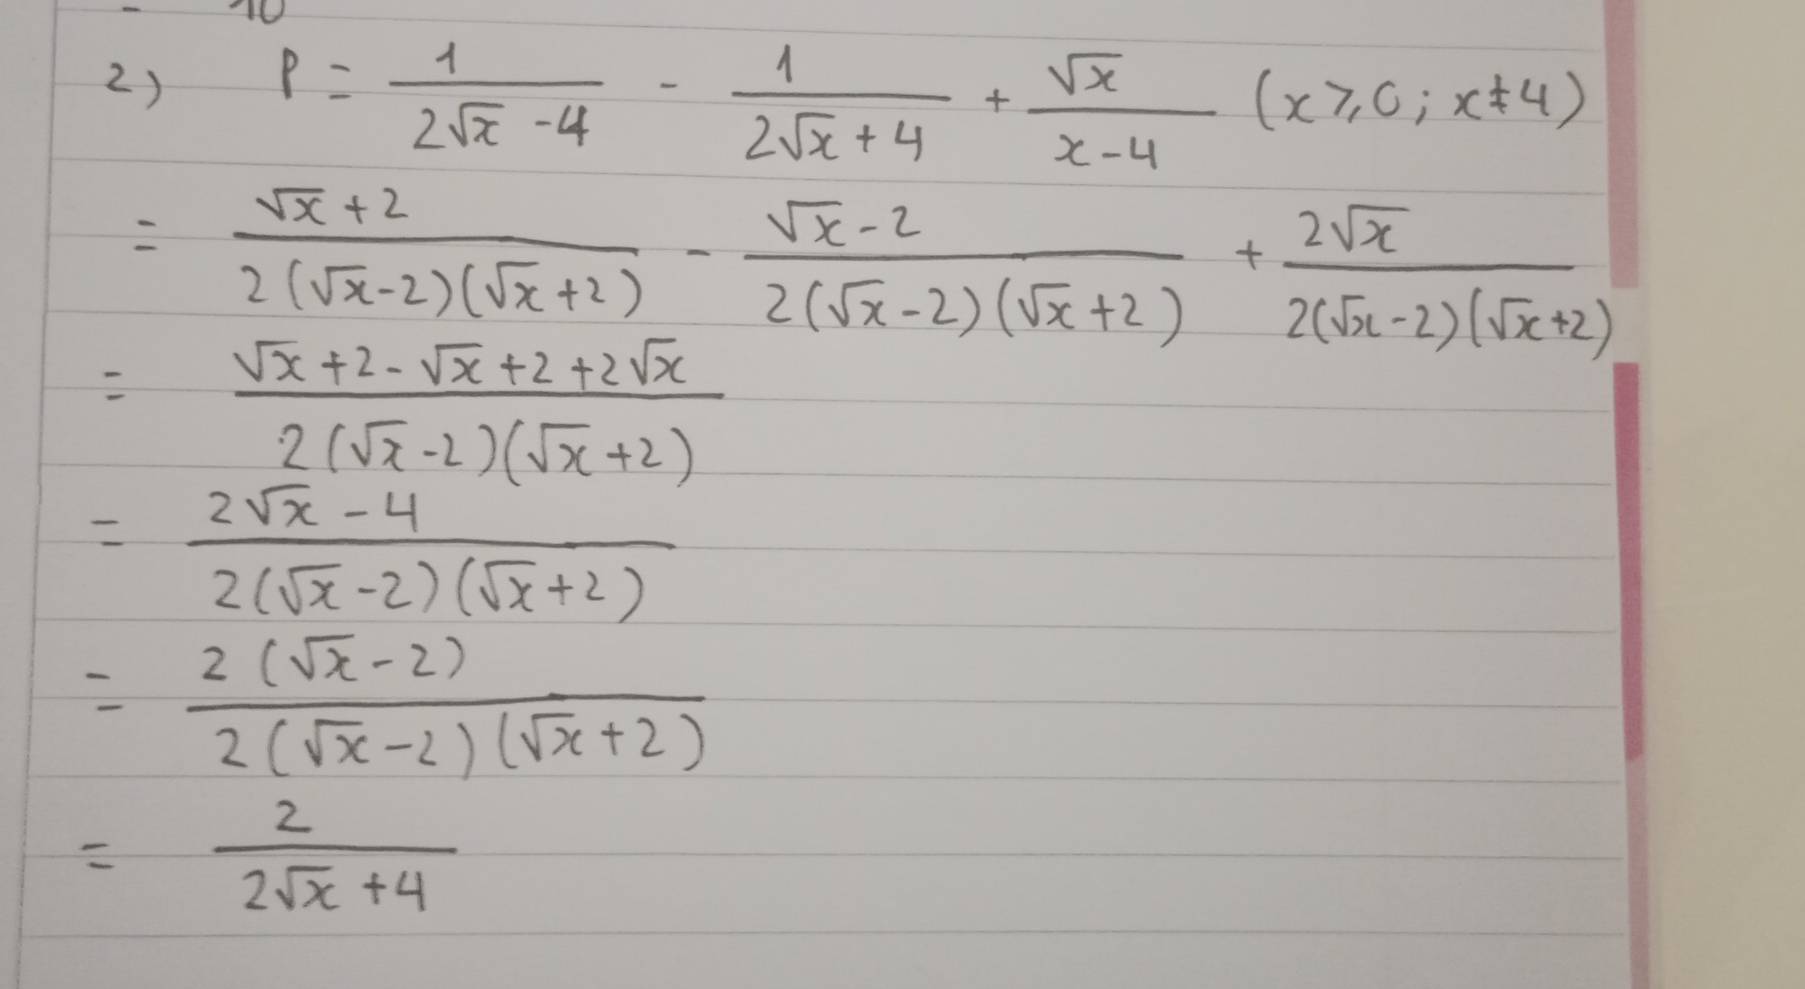 - 10
2) P = 1/(2√x - 4) - 1/(2√x + 4) + √x/(x - 4) (x ⩾ 0; x ≠ 4)
= (√x + 2)/(2(√x - 2)(√x + 2)) - (√x - 2)/(2(√x - 2)(√x + 2)) + 2√x/(2(√x - 2)(√x + 2))
= (√x + 2 - √x + 2 + 2√x)/(2(√x - 2)(√x + 2))
= (2√x - 4)/(2(√x - 2)(√x + 2))
= 2(√x - 2)/(2(√x - 2)(√x + 2))
= 2/(2√x + 4)